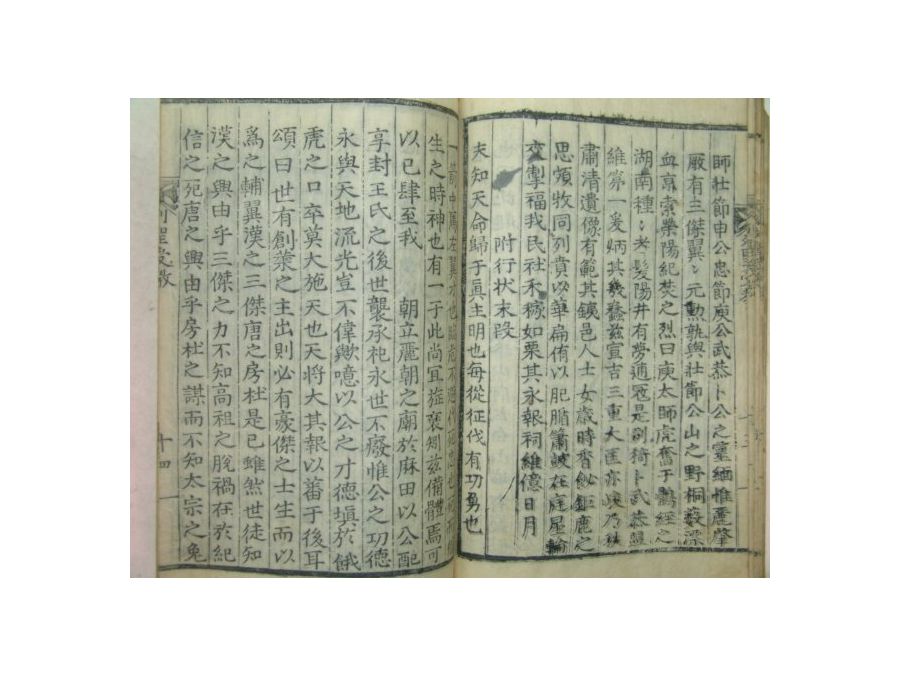 師壯節申公忠節庾公武恭卜公之靈緬惟麗肇
厥有三傑翼〻元勳孰與壯節公山之野桐藪深
血亨索滎陽紀焚之烈曰庾太師虎奮于鵠經之
湖南種〻老髮陽井有夢通冠是別猗卜武恭
維第一爰炳其幾蠢玆宣吉三重大匡亦
肅淸遺像有範其鐵邑人士女歲時香鉅鹿之
思頗牧同列賁以華扁侑以肥腯簫鼓在庭星輪
交掣福我民社禾稼如栗其永報祠維億日月
附行狀末段
未知天命歸于眞主明也每從征伐有功勇也
生之時神也有一于此尙冝旌褒矧玆備體焉可
以已肆至我 朝立麗朝之廟於麻田以公配
享封王氏之後世襲承祀永世不廢惟公之功德
永與天地流光豈不偉歟噫以公之才德塡於餓
虎之口卒莫大施天也天將大其報以蕃于後耳
頌曰世有創業之主出則必有豪傑之士生而以
爲之輔翼漢之三傑唐之房杜是已雖然世徒知
漢之興由乎三傑之力不知高祖之脫禍在於紀
信之死唐之興由乎房杜之謀而不知太宗之免
十四